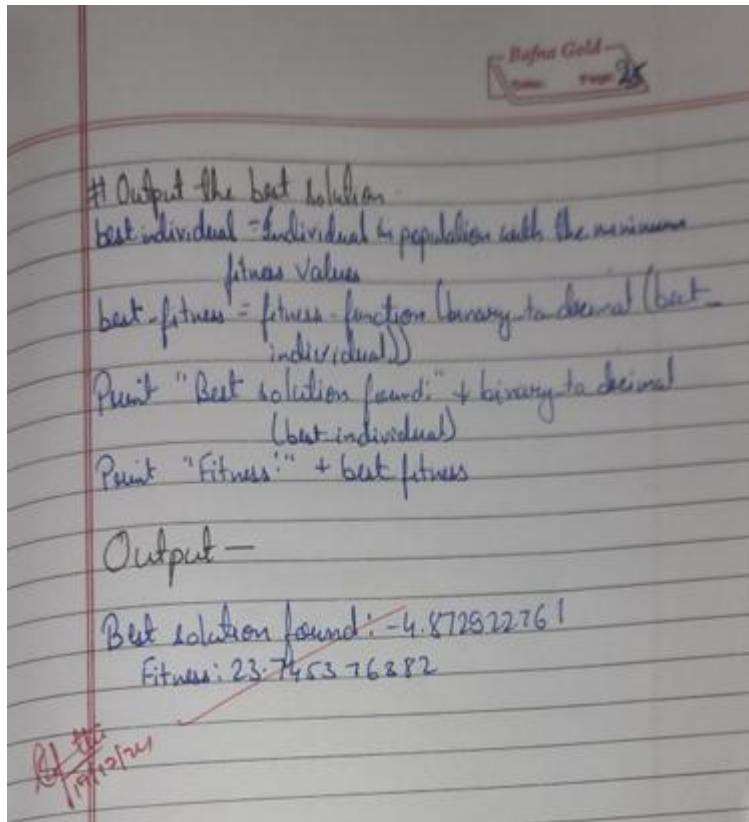 Bafna Gold
Date: Page: 25
# Output the best solution
best individual = Individual in population with the minimum
fitness values
best-fitness = fitness-function (binary_to decimal (best_
individual))
Print "Best solution found:" + binary_to decimal
(best individual)
Print "Fitness:" + best fitness
Output —
Best solution found: -4.872922761
Fitness: 23.745376382
19/12/24